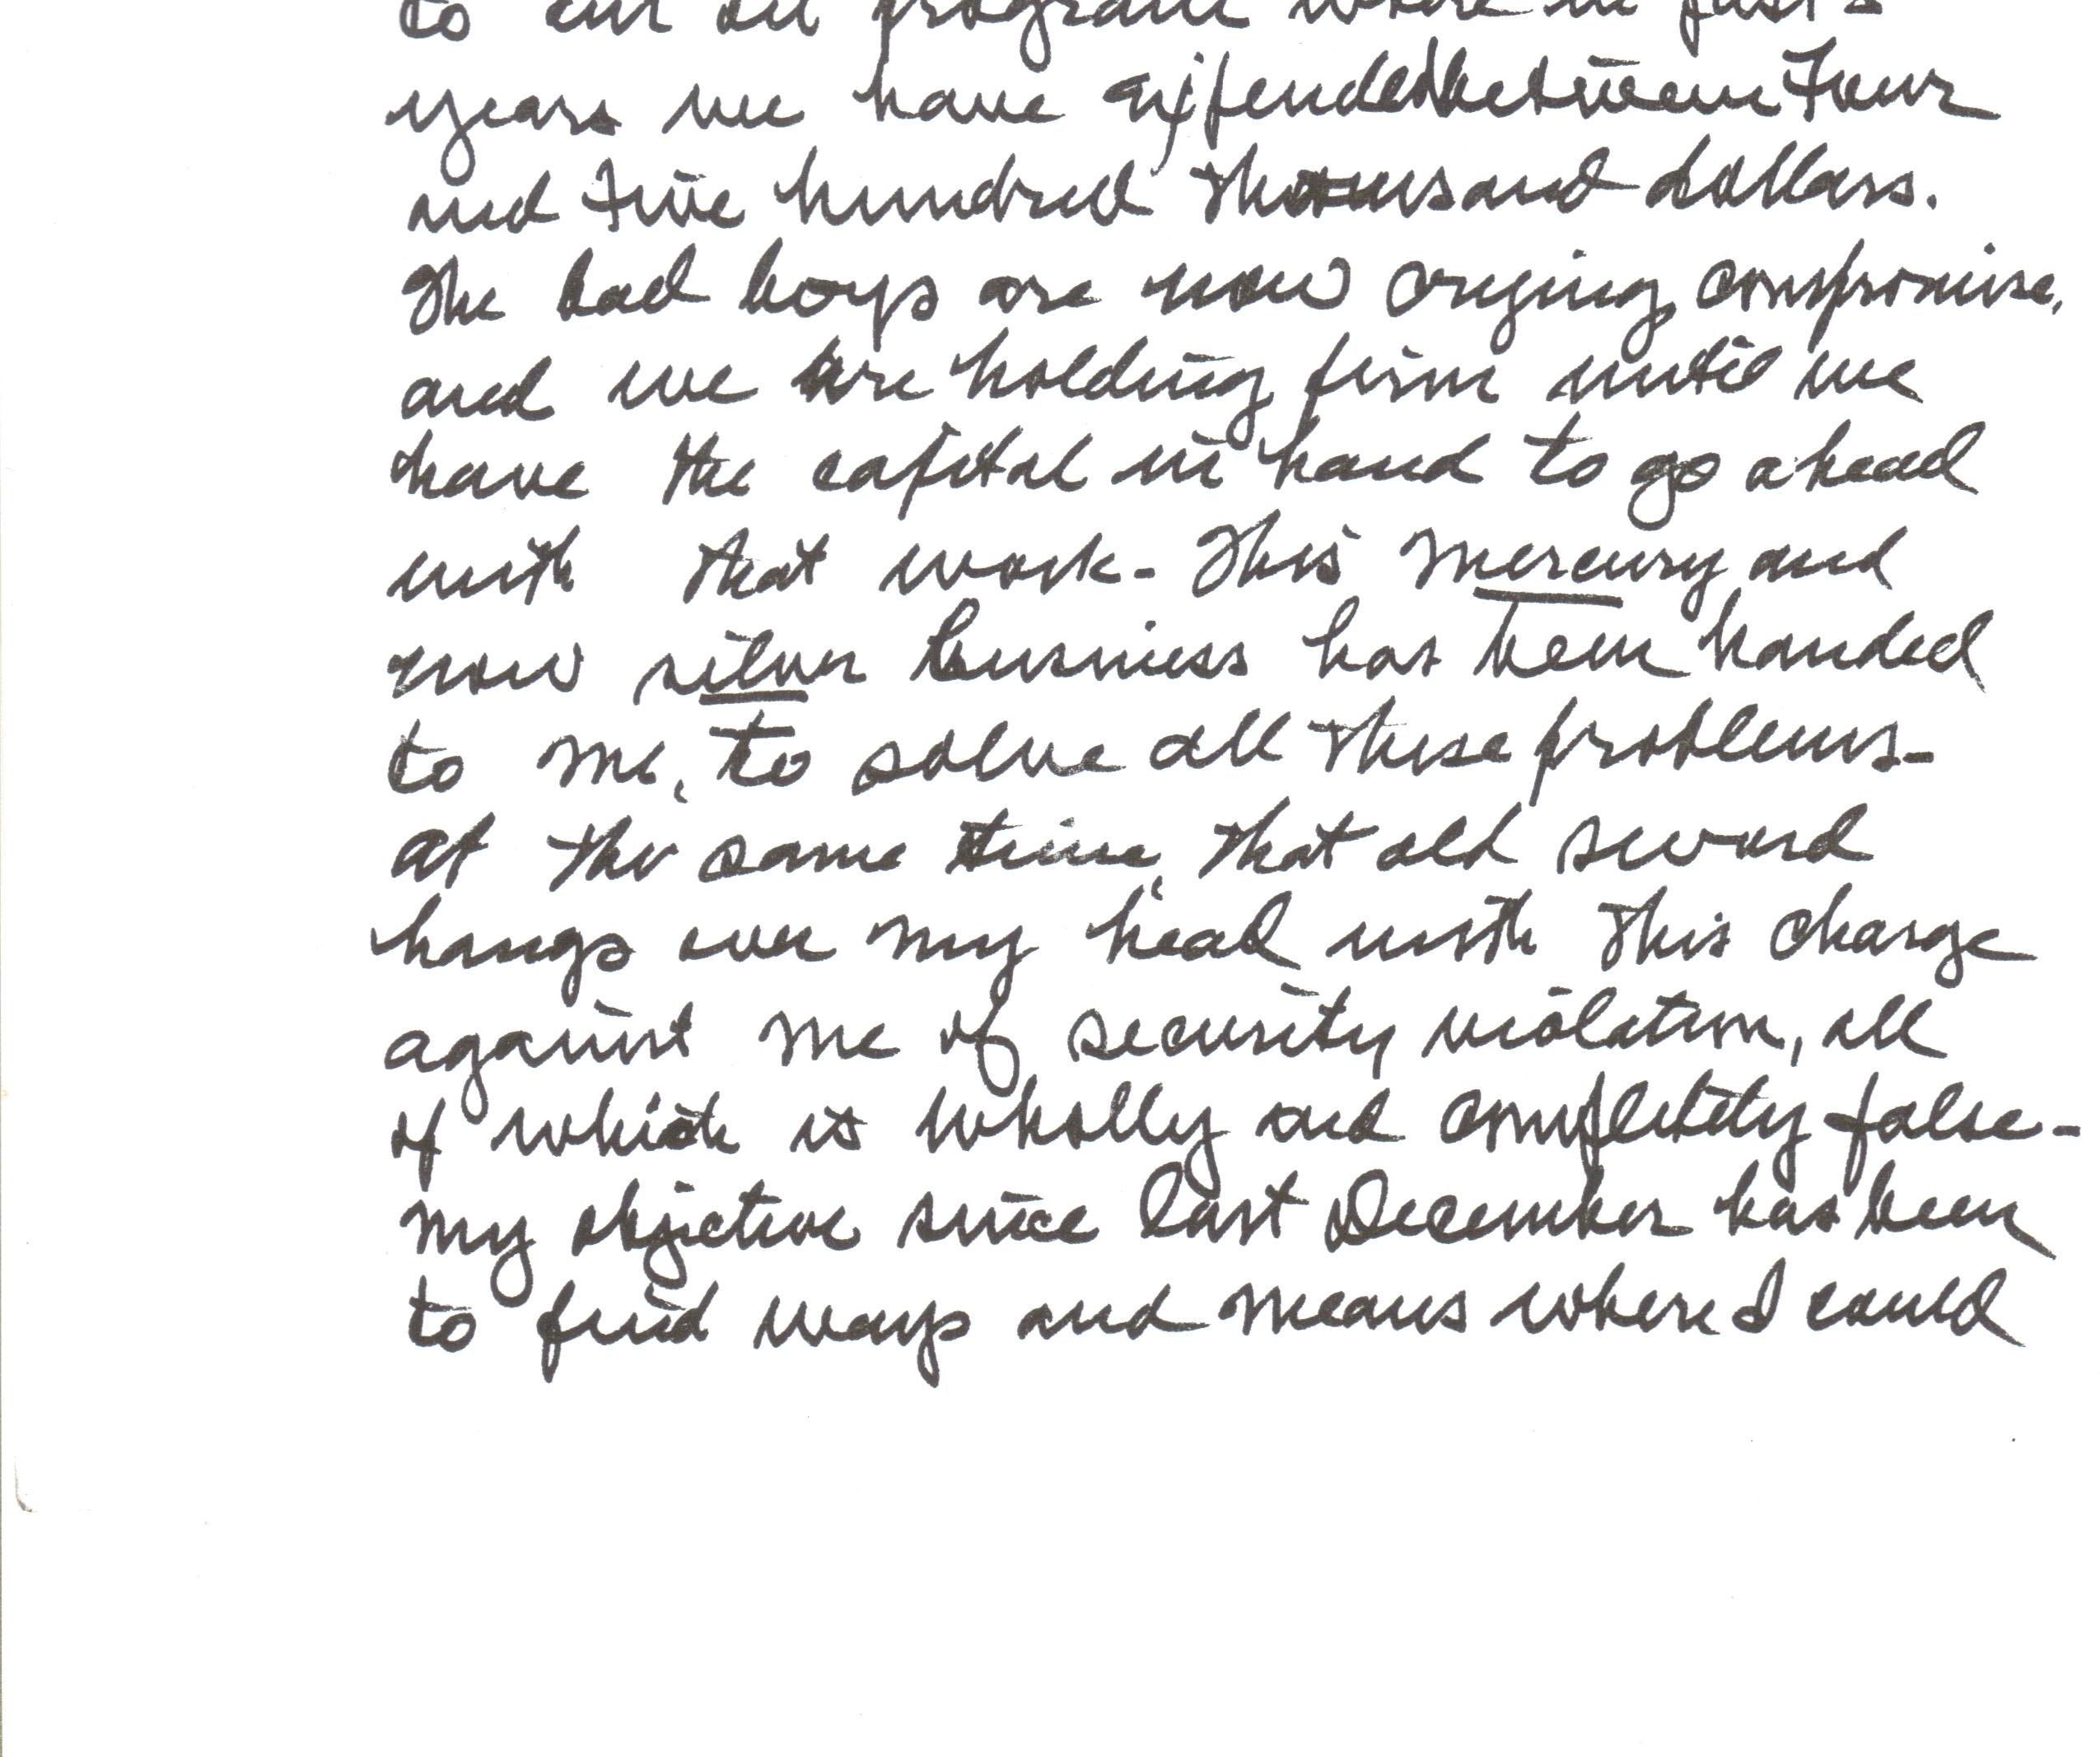 to our oil program where in past
years we have expended between Four
and Five hundred thousand dollars.
The bad boys are now crying compromise,
and we are holding firm until we
have the capital in hand to go ahead
with that work - This mercury and
now silver business has been handed
to me, to solve all these problems -
at the same time, that old sword
hangs over my head with this charge
against me of security violation, all
of which is wholly and completely false -
my objective since last December has been
to find ways and means where I could